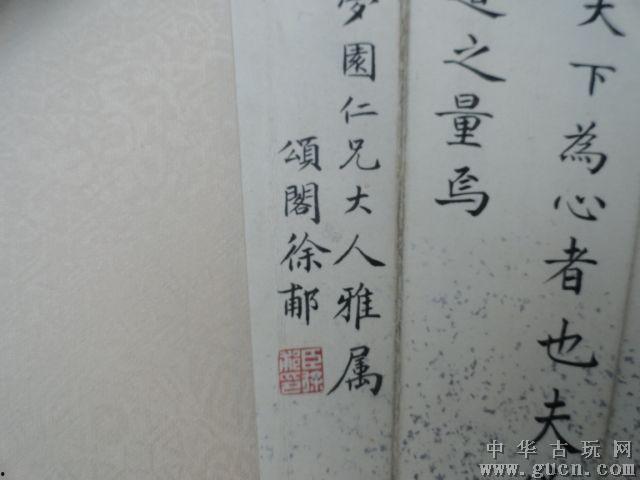 天下為心者也夫
之量焉
夢園仁兄大人雅属
頌閣徐郙
中华古玩网
www.gucn.com